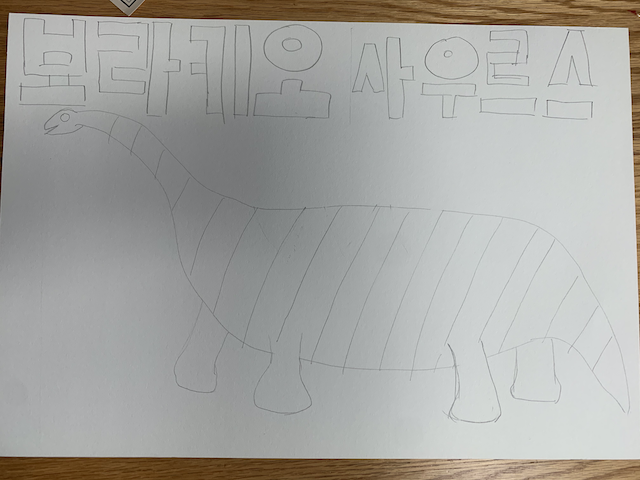 브라키오 사우르스